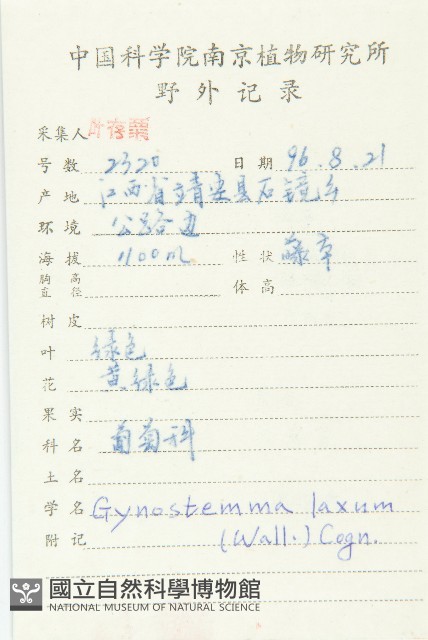 中国科学院南京植物研究所
野外记录
采集人 叶存粟
号数 2320 日期 96.8.21
产地 江西省 县石镜乡
环境 公路边
海拔 1100m 性状 藤本
胸高直径 体高
树皮
叶 绿色
花 黄绿色
果实
科名 葡萄科
土名
学名 Gynostemma laxum
附记 (Wall.) Cogn.
國立自然科學博物館
NATIONAL MUSEUM OF NATURAL SCIENCE